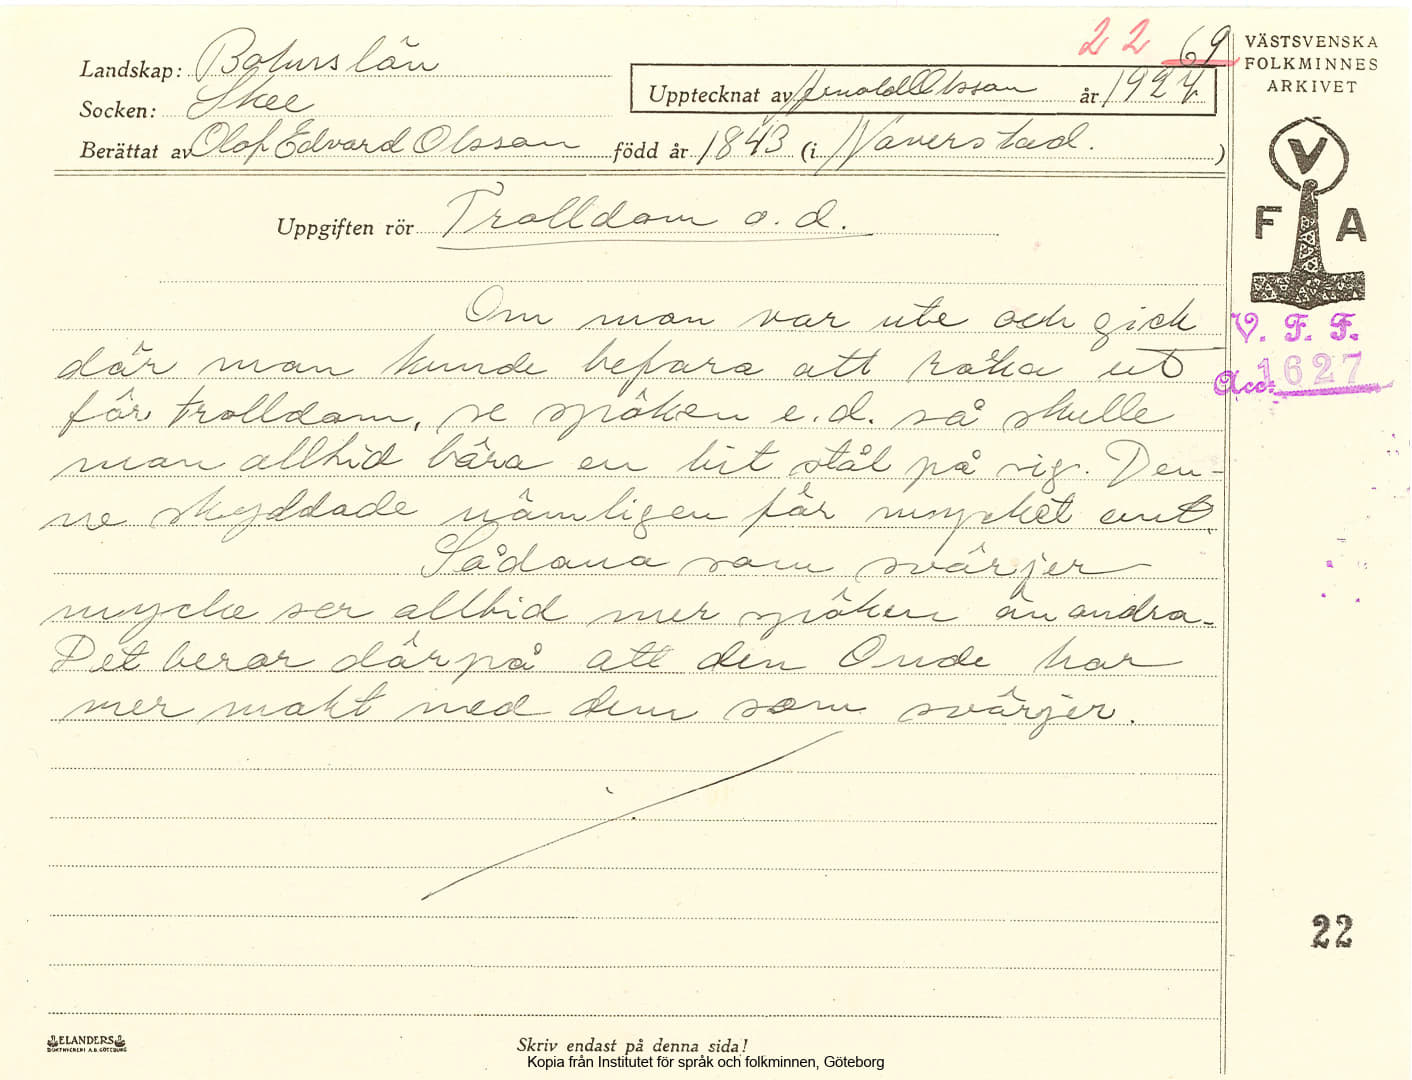 22 69
Landskap: Bohuslän
Socken: Skee
Upptecknat av Arnold Olsson år 1927
Berättat av Olof Edvard Olsson född år 1843 (i Naverstad.)
Uppgiften rör Trolldom o.d.
Om man var ute och gick
där man kunde befara att råka ut
för trolldom, se spöken e.d. så skulle
man alltid bära en bit stål på sig. Den-
ne skyddade nämligen för mycket ont.
Sådana som svärjer
mycke ser alltid mer spöken än andra.
Det beror därpå att den Onde har
mer makt med dem som svärjer.
VÄSTSVENSKA
FOLKMINNES
ARKIVET
V
F A
V. F. F.
Acc: 1627
22
ELANDERS
BOKTRYCKERI A.B. GÖTEBORG
Skriv endast på denna sida!
Kopia från Institutet för språk och folkminnen, Göteborg